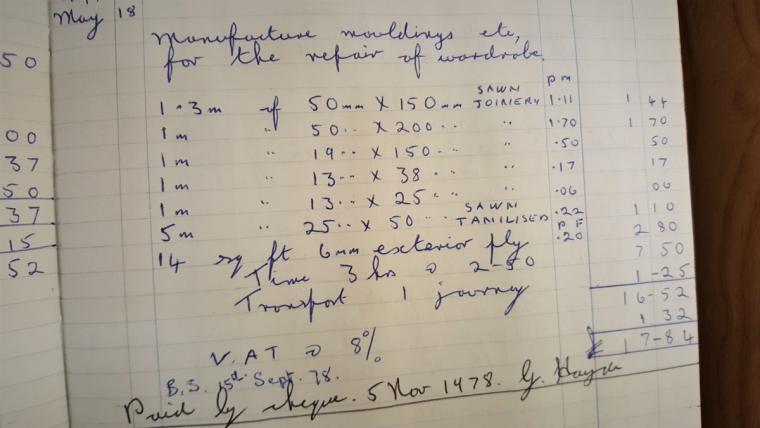 50
00
37
50
37
15
52
May 18
Manufacture mouldings etc,
for the repair of wardrobe.
P M
1·3m of 50mm X 150mm SAWN JOINIERY 1·11 1 44
1m " 50·· X 200·· " 1·70 1 70
1m " 19·· X 150·· " ·50 50
1m " 13·· X 38·· " ·17 17
1m " 13·· X 25·· " ·06 06
5m " 25·· X 50·· SAWN TANILISED ·22 1 10
P F
14 sq ft 6mm exterior ply ·20 2 80
Time 3 hrs @ 2-50 7 50
Transport 1 journey 1-25
16-52
V.A.T @ 8% 1 32
£ 17-84
B.S. 15th Sept. 78.
Paid by cheque. 5 Nov 1978. G.